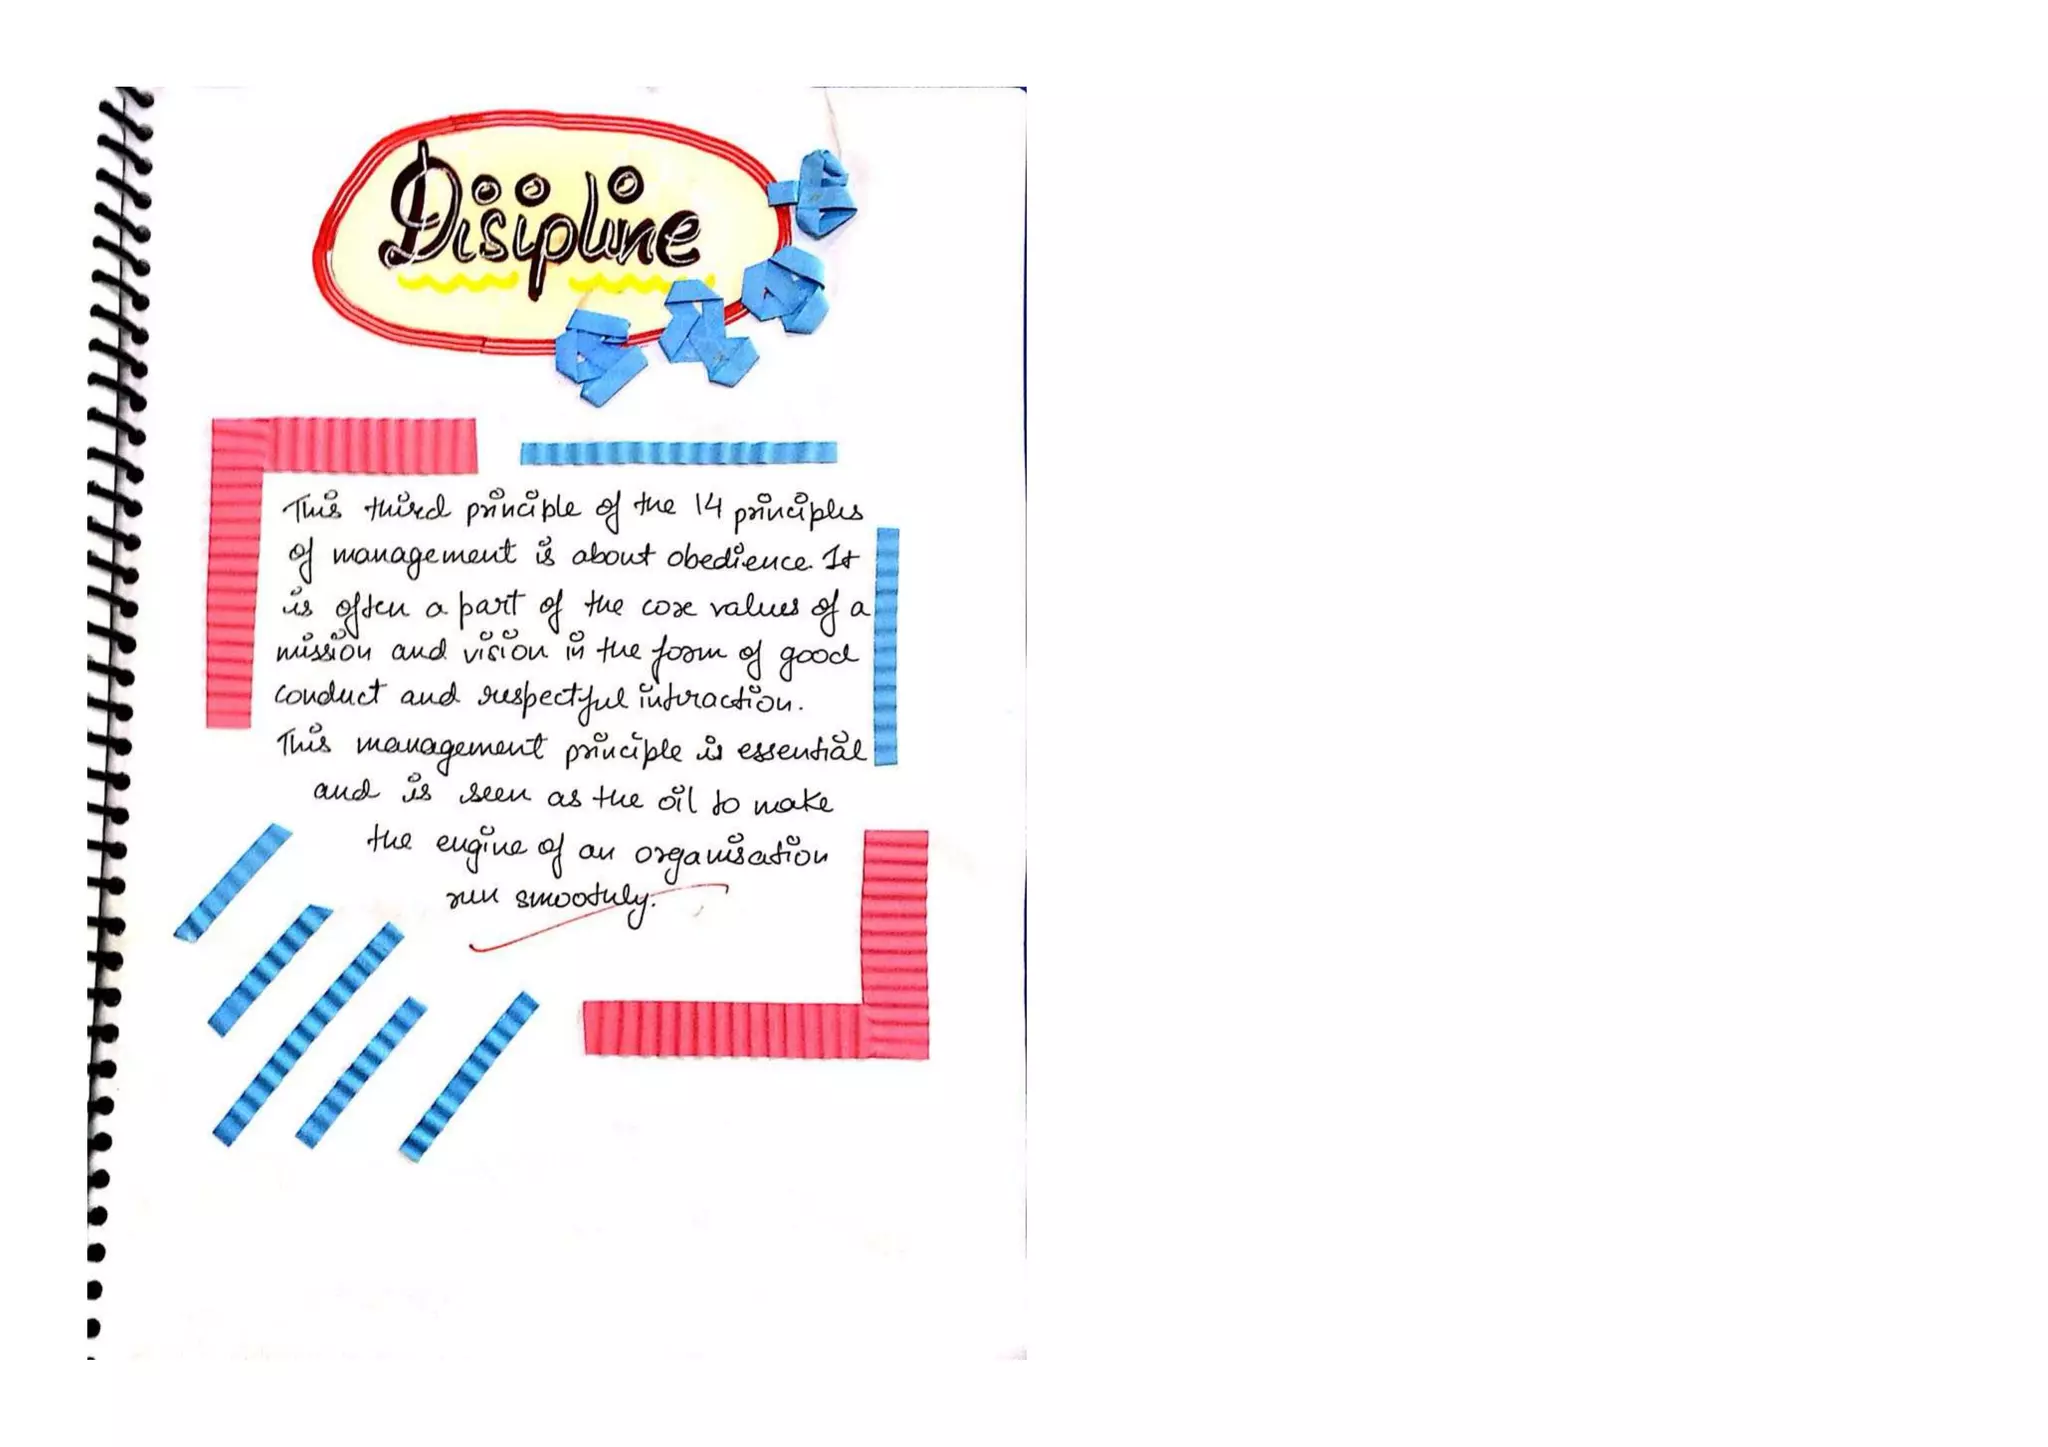 Disipline
This third principle of the 14 principles
of management is about obedience. It
is often a part of the core values of a
mission and vision in the form of good
conduct and respectful interaction.
This management principle is essential
and is seen as the oil to make
the engine of an organisation
run smoothly.